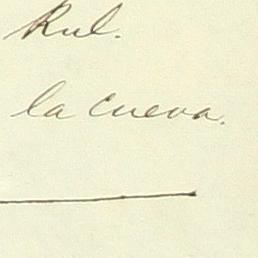 Rul.
la Cueva.